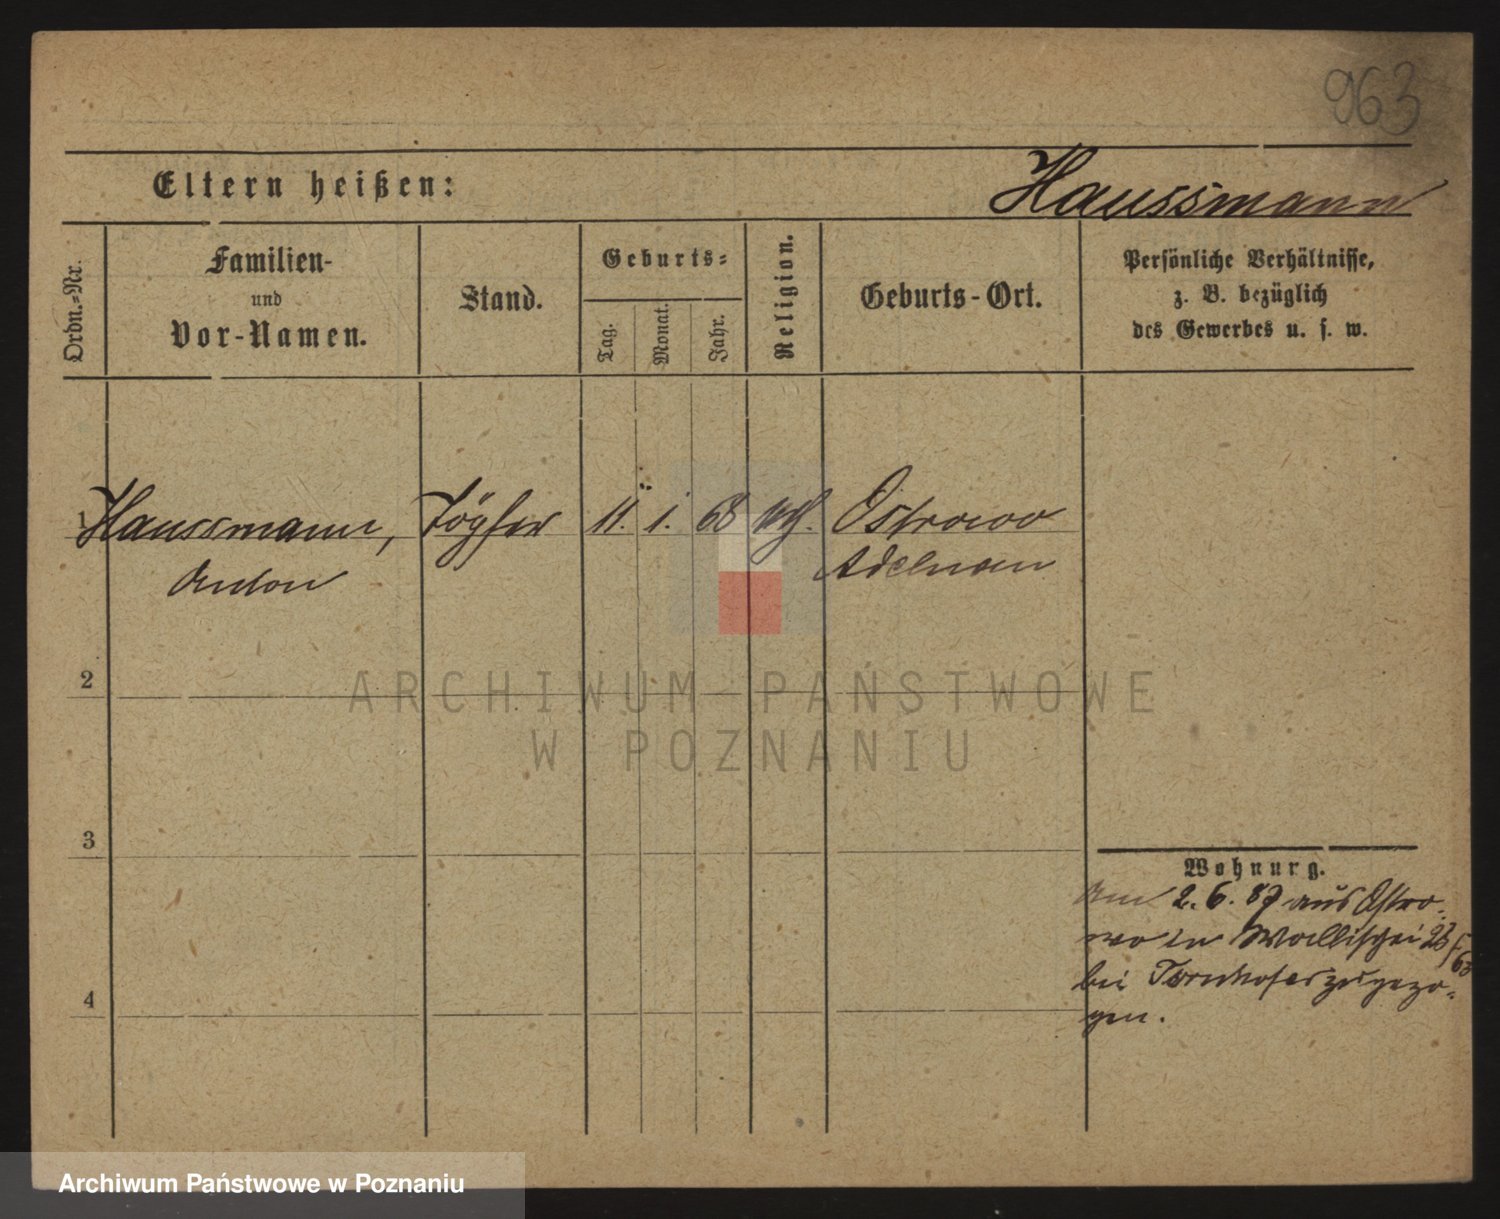 963
Eltern heißen:
Haussmann
Ordn.=Nr.
Familien-
und
Vor-Namen.
Stand.
Geburts=
Tag.
Monat.
Jahr.
Religion.
Geburts-Ort.
Persönliche Verhältnisse,
z. B. bezüglich
des Gewerbes u. s. w.
1 Haussmann, Töpfer 11. 1. 68 Ostrowo
Anton Adelnau
2
3
4
Wohnung.
Am 2. 6. 87 aus Ostro-
wo in Wallischei
bei zugezo-
gen.
ARCHIWUM PAŃSTWOWE
W POZNANIU
Archiwum Państwowe w Poznaniu